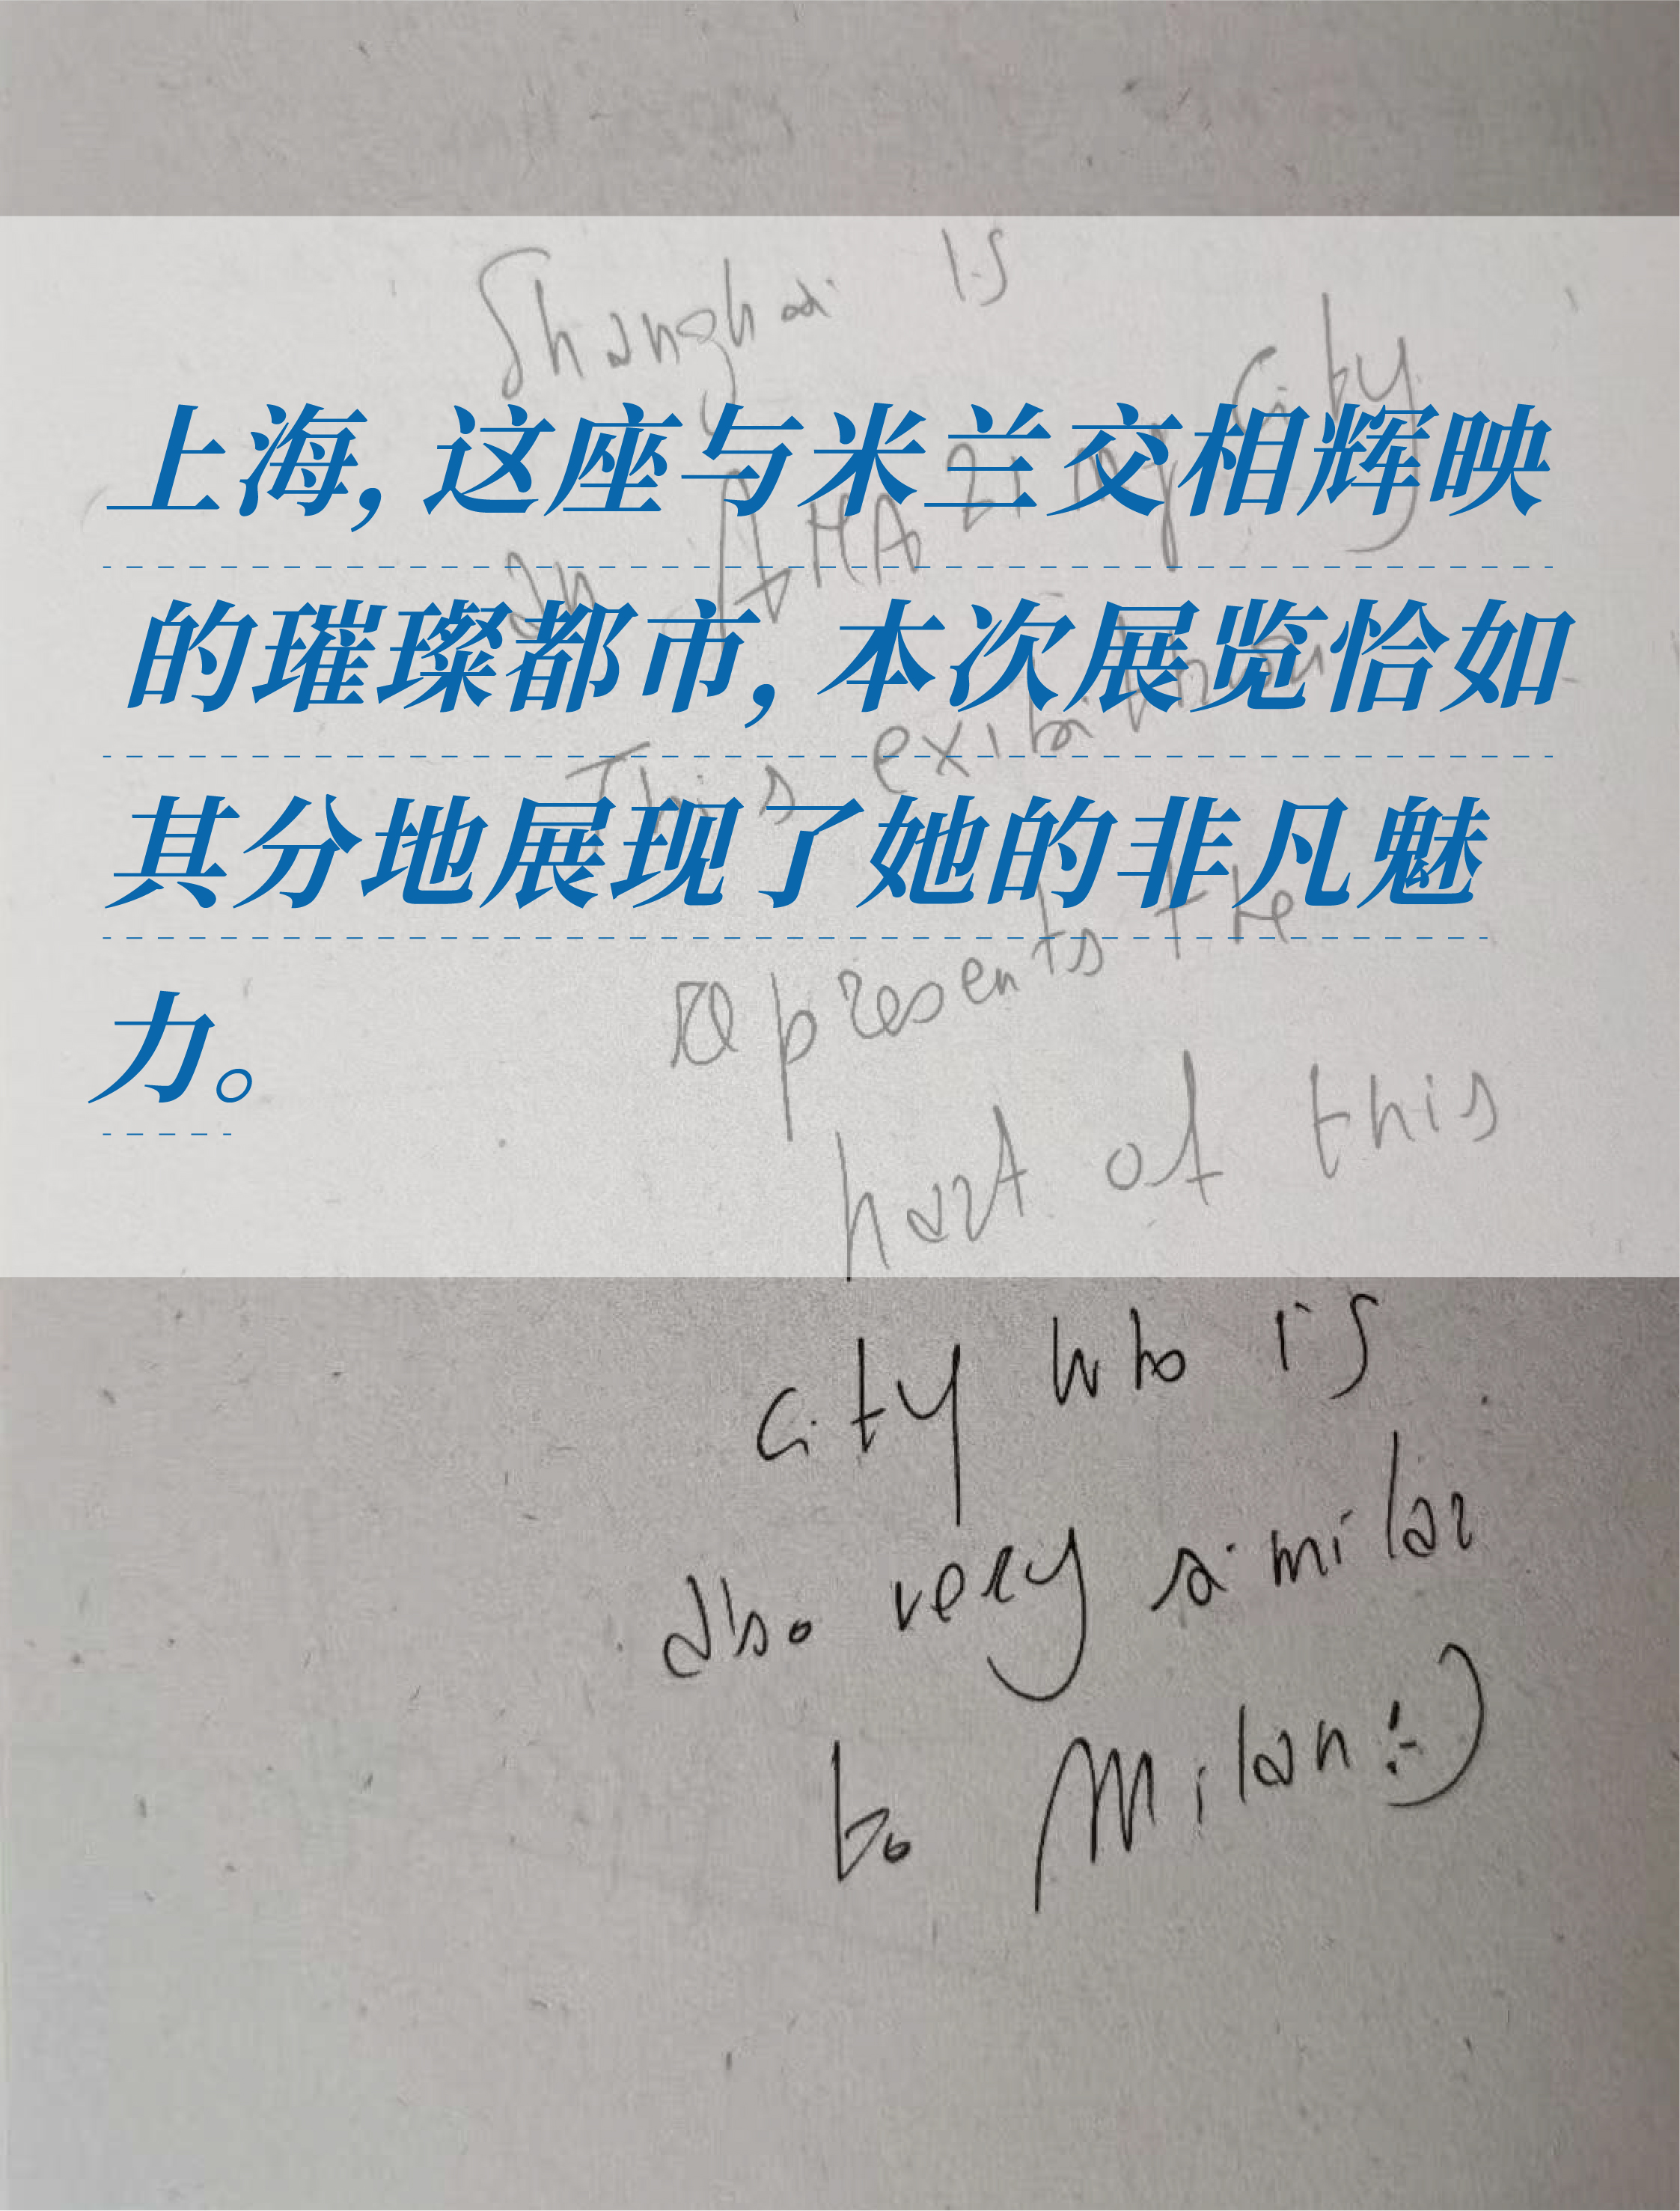 Shanghai is
上海，这座与米兰交相辉映
an AMAZing city
的璀璨都市，本次展览恰如
This exibition
其分地展现了她的非凡魅
represents the
力。
hart of this
city who is
also very similar
to Milan :-)